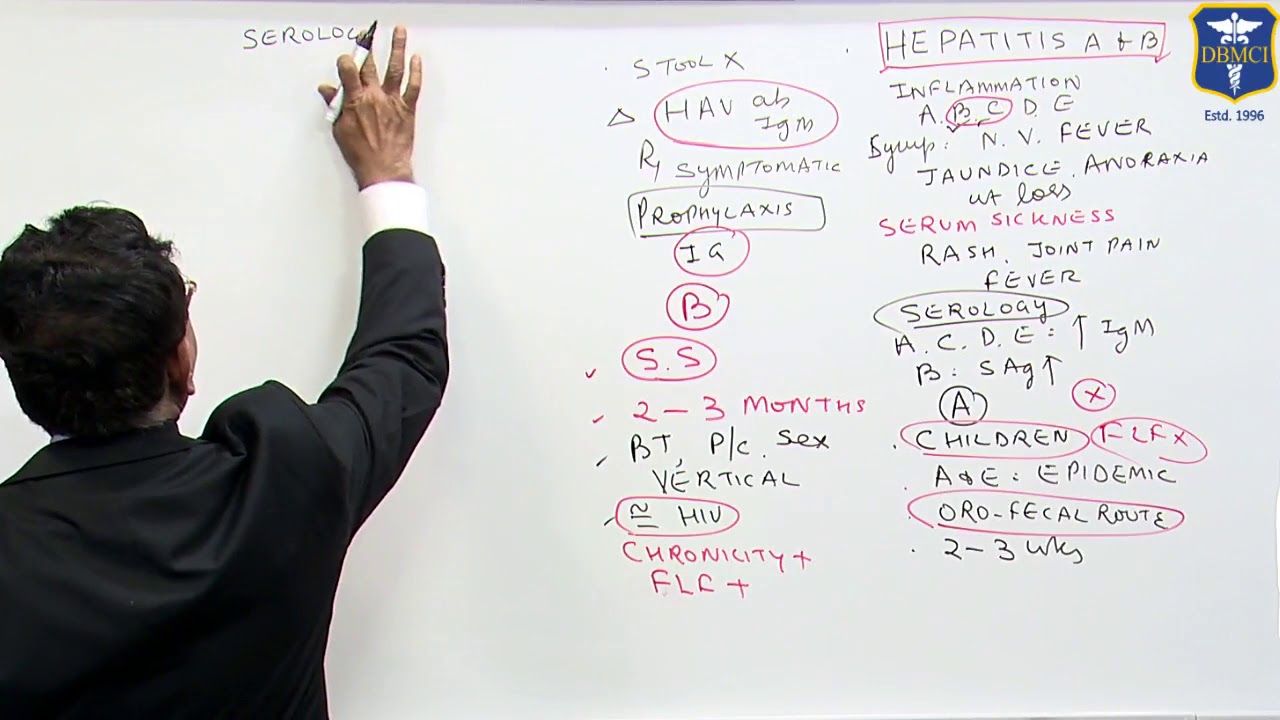 HEPATITIS A & B
INFLAMMATION
A. B, C D E
Symp: N. V. FEVER
JAUNDICE. ANORAXIA
wt loss
SERUM SICKNESS
RASH. JOINT PAIN
FEVER
SEROLOGY
A. C. D. E: ↑ IgM
B: SAg ↑
A X
CHILDREN FLF X
A & E: EPIDEMIC
ORO-FECAL ROUTE
2-3 wks
STOOL X
Δ HAV ab
IgM
Rx SYMPTOMATIC
PROPHYLAXIS
IG
B
S.S
2-3 MONTHS
BT, P/c. Sex
VERTICAL
≅ HIV
CHRONICITY +
FLF +
SEROLOG
DBMCI
Estd. 1996